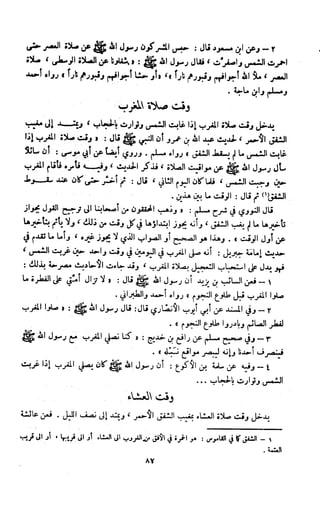 ٢ - وعن ابن مسعود قال : حبس المشركون رسول الله ﷺ عن صلاة العصر حتى
احمرت الشمس واصفرت ، فقال رسول الله ﷺ : « شغلونا عن الصلاة الوسطى ، صلاة
العصر ، ملأ الله أجوافهم وقبورهم ناراً » ، « أو حشا أجوافهم وقبورهم ناراً » رواه أحمد
ومسلم وابن ماجة .
وقت صلاة المغرب
يدخل وقت صلاة المغرب إذا غابت الشمس وتوارت بالحجاب ، ويمتد إلى مغيب
الشفق الأحمر ، لحديث عبد الله بن عمرو أن النبي ﷺ قال : « وقت صلاة المغرب إذا
غابت الشمس ما لم يسقط الشفق » رواه مسلم . وروي أيضاً عن أبي موسى : أن سائلاً
سأل رسول الله ﷺ عن مواقيت الصلاة ، فذكر الحديث ، وفيه « فأمره فأقام المغرب
حين وجبت الشمس ، فلما كان اليوم الثاني ، قال : ثم أخر حتى كان عند سقوط
الشفق (١) ثم قال : الوقت ما بين هذين .
قال النووي في شرح مسلم : « وذهب المحققون من أصحابنا الى ترجيح القول بجواز
تأخيرها ما لم يغب الشفق ، وأنه يجوز ابتداؤها في كل وقت من ذلك ، ولا يأثم بتأخيرها
عن أول الوقت » . وهذا هو الصحيح أو الصواب الذي لا يجوز غيره ، وأما ما تقدم في
حديث إمامة جبريل : أنه صلى المغرب في اليومين في وقت واحد حين غربت الشمس ،
فهو يدل على استحباب التعجيل بصلاة المغرب ، وقد جاءت الأحاديث مصرحة بذلك :
١ - فعن السائب بن يزيد أن رسول الله ﷺ قال : « لا تزال أمتي على الفطرة ما
صلوا المغرب قبل طلوع النجوم » رواه أحمد والطبراني .
٢ - وفي المسند عن أبي أيوب الأنصاري قال : قال رسول الله ﷺ : « صلوا المغرب
لفطر الصائم وبادروا طلوع النجوم » .
٣ - وفي صحيح مسلم عن رافع بن خديج : « كنا نصلي المغرب مع رسول الله ﷺ
فينصرف أحدنا وإنه ليبصر مواقع نبله » .
٤ - وفيه عن سلمة بن الأكوع : أن رسول الله ﷺ كان يصلي المغرب إذا غربت
الشمس وتوارت بالحجاب ...
وقت العشاء
يدخل وقت صلاة العشاء بمغيب الشفق الأحمر ، ويمتد إلى نصف الليل . فعن عائشة
١ - الشفق كما في القاموس : هو الحمرة في الأفق من الغروب الى العشاء أو الى قريبها ، أو الى قريب
العتمة .
٨٧